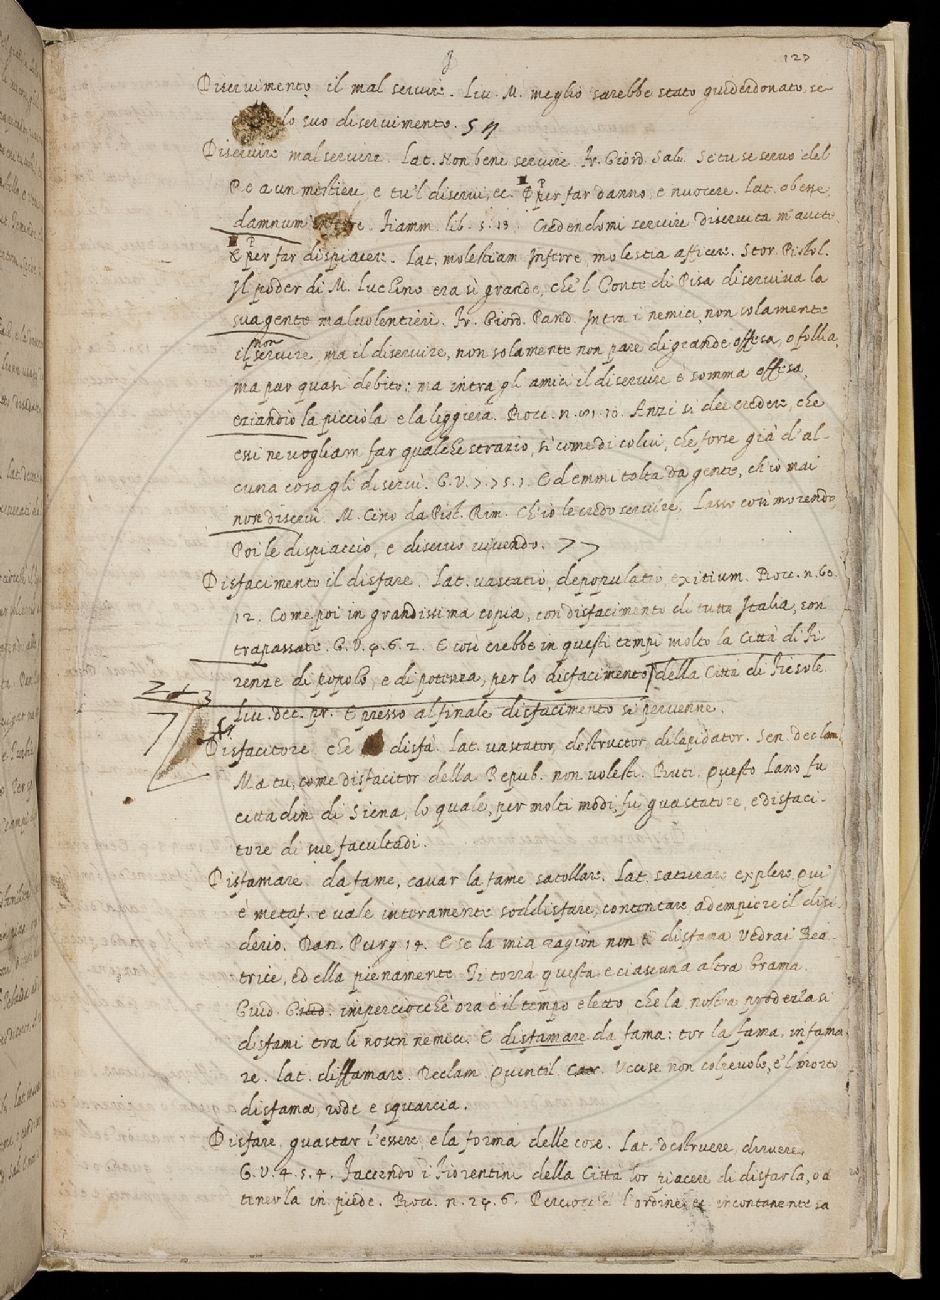 127
Diservimento il mal servire. Liv. M. meglio sarebbe stato guiderdonato, se
lo suo diservimento. 59
Diservire mal servire. Lat. Non bene servire. Fr. Giord. Salv. Se tu se servo del
Re a un mestiere, e tu'l diservi, ec. P per far danno, e nuocere. Lat. obesse
damnum Fiamm. lib. 5. 18. Credendomi servire diservita m'avete
E per far dispiacere. Lat. molestiam inferre, molestia afficere. Stor. Pistol.
Il poder di M. Luchino era sì grande, che'l Conte di Pisa diserviva la
sua gente malvolentieri. Fr. Giord. Pand. Intra i nemici, non solamente
il non servire, ma il diservire, non solamente non pare di grande offesa, o follia,
ma par quasi debito: ma intra gl'amici il diservire è somma offesa
eziandio la picciola e la leggiera. Bocc. n. 10. Anzi si dee credere, che
essi ne vogliam far qualche strazio, sì come di colui, che forse già d'al-
cuna cosa gli diservì. G. V. 7. 75. 1. Ed emmi tolta da gente, ch'io mai
non diservi. M. Cino da Pist. Rim. Ch'io le credo servire, lasso così morendo
Poi le dispiaccio, e diservo vivendo. 77
Disfacimento il disfare. Lat. vastatio, depopulatio, exitium. Bocc. n. 60.
12. Come poi in grandissima copia, con disfacimento di tutta Italia, son
trapassate. G. V. 4. 6. 2. E così crebbe in questi tempi molto la Città di Fi
renze di popolo, e di potenza, per lo disfacimento della Città di Fiesole
Liv. dec. pr. E presso al finale disfacimento si pervenne.
2 3
Disfacitore che disfà. Lat. vastator, destructor, dilapidator. Sen. declam
Ma tu, come disfacitor della Repub. non volesti. Buti. Questo Lano fu
cittadin di Siena, lo quale, per molti modi, fu guastatore, e disfaci-
tore di sue facultadi.
Disfamare da fame, cavar la fame satollare. Lat. saturare explere, qui
è metaf. e vale interamente soddisfare, contentare, adempiere il disi-
derio. Dan. Purg 14. E se la mia ragion non ti disfama Vedrai Bea-
trice, ed ella pienamente Ti torrà questa e ciascuna altra brama.
Guid. Giud. imperciocchè ora è il tempo eletto che la nostra prodezza si
disfami tra li nostri nemici. E disfamare da fama: tor la fama, infama-
re. lat. diffamare. Declam Quintil Uccise non colpevole, e'l morto
disfama, rode e squarcia.
Disfare, guastar l'essere, e la forma delle cose. Lat. destruere, diruere.
G. V. 4. 5. 4. Faccendo i Fiorentini della Città lor piacere di disfarla, o a
tenerla in piede. Bocc. n. 24. 6. Perciocchè l'ordine incontanente sa